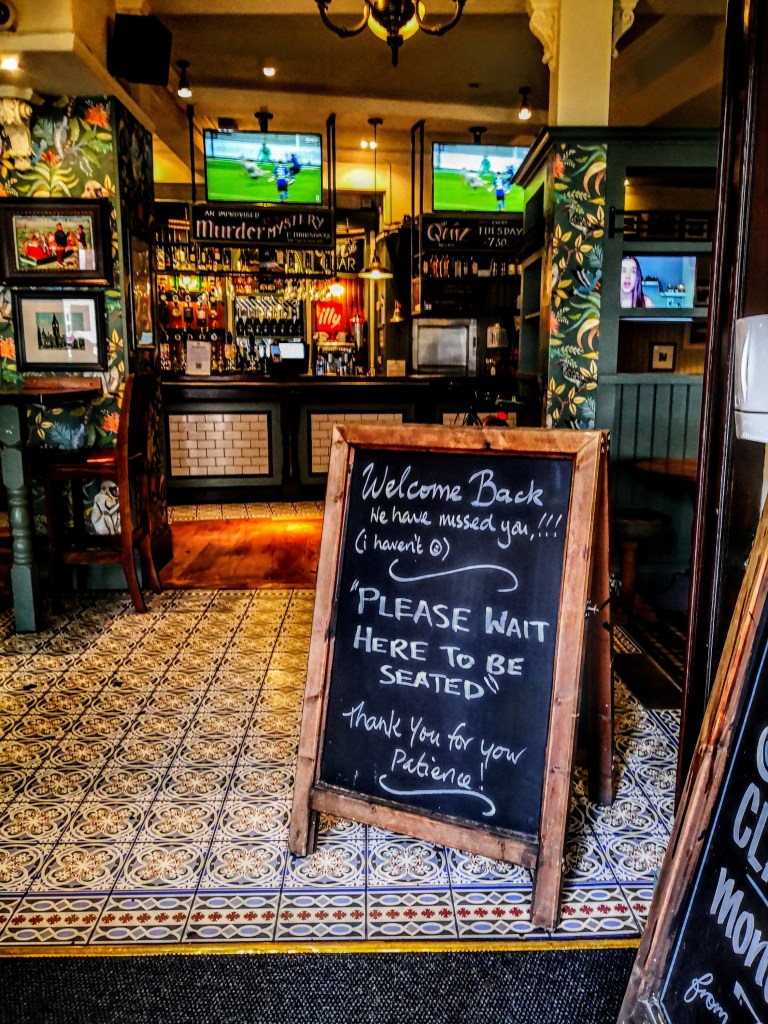 AN IMPROVISED
Murder MYSTERY
Quiz
EVERY
TUESDAY
7.30
BAR
illy
Welcome Back
We have missed you,!!!
(i haven't ☹)
"PLEASE WAIT
HERE TO BE
SEATED"
Thank You for your
Patience!
CL
Mon
from